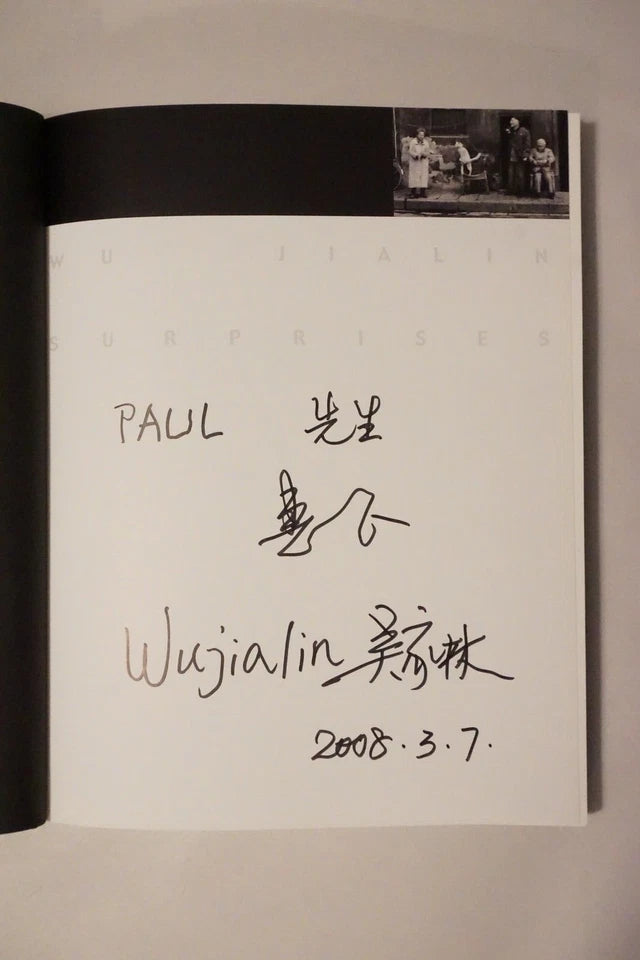 WU JIALIN
SURPRISES
PAUL 先生
惠存
Wujialin 吴家林
2008.3.7.